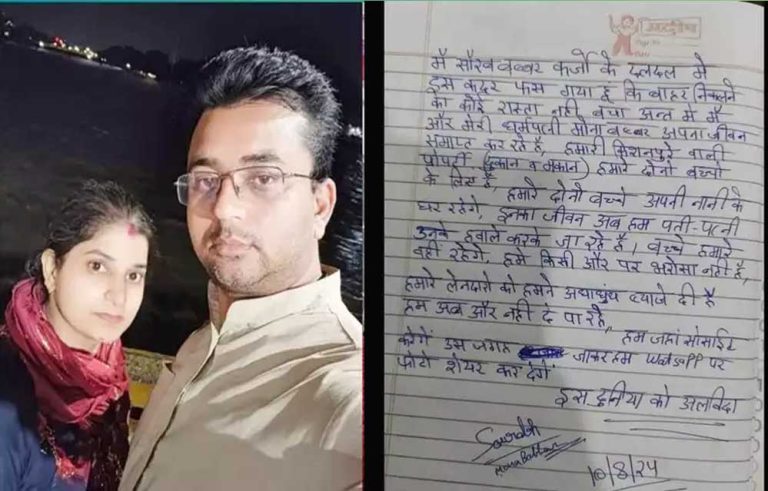 अमरउजाला
मैं सौरव बब्बर कर्जो के दलदल में
इस कदर फंस गया हूं कि बाहर निकलने
का कोई रास्ता नही बचा अन्त मे मैं
और मेरी धर्मपत्नी मोना बब्बर अपना जीवन
समाप्त कर रहे है. हमारी किशनपुरे वाली
प्रोपर्टी (दुकान व मकान) हमारे दोनो बच्चो
के लिए है, हमारे दोनो बच्चे अपनी नानी के
घर रहेगे, इनका जीवन अब हम पती-पत्नी
उनके हवाले करके जा रहे है। बच्चे हमारे
वहीं रहेगे, हमे किसी और पर भरोसा नही है,
हमारे लेनदारो को हमने अंधाधुंध ब्याजे दी है
हम अब और नही दे पा रहे, हम जहां सोसाईट
करेगें उस जगह जाकर हम Watsaff पर
फोटो शेयर कर देगे
इस दुनिया को अलविदा
Saurabh
Mona Babbar
10/8/24